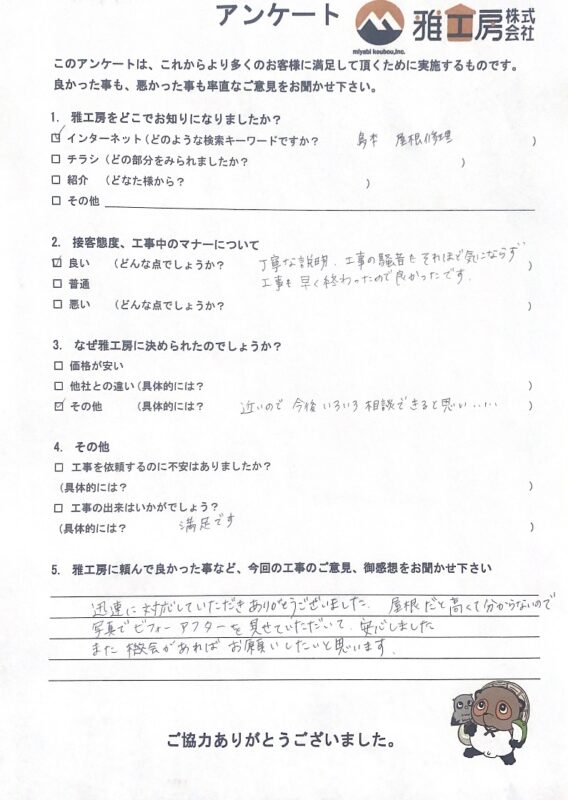 アンケート 雅工房 株式会社
miyabi koubou,inc.
このアンケートは、これからより多くのお客様に満足して頂くために実施するものです。
良かった事も、悪かった事も率直なご意見をお聞かせ下さい。
1. 雅工房をどこでお知りになりましたか?
☑ インターネット(どのような検索キーワードですか? 島本 屋根修理 )
□ チラシ(どの部分をみられましたか? )
□ 紹介 (どなた様から? )
□ その他
2. 接客態度、工事中のマナーについて
☑ 良い (どんな点でしょうか? 丁寧な説明、工事の騒音もそれほど気にならず
□ 普通 工事も早く終わったので良かったです。
□ 悪い (どんな点でしょうか? )
3. なぜ雅工房に決められたのでしょうか?
□ 価格が安い
□ 他社との違い(具体的には? )
☑ その他 (具体的には? 近いので 今後いろいろ相談できると思い..... )
4. その他
□ 工事を依頼するのに不安はありましたか?
(具体的には? )
□ 工事の出来はいかがでしょう?
(具体的には? 満足です )
5. 雅工房に頼んで良かった事など、今回の工事のご意見、御感想をお聞かせ下さい
迅速に対応していただきありがとうございました。 屋根だと高くて分からないので
写真でビフォーアフターを見せていただいて、安心しました
また機会があれば お願いしたいと思います。
ご協力ありがとうございました。